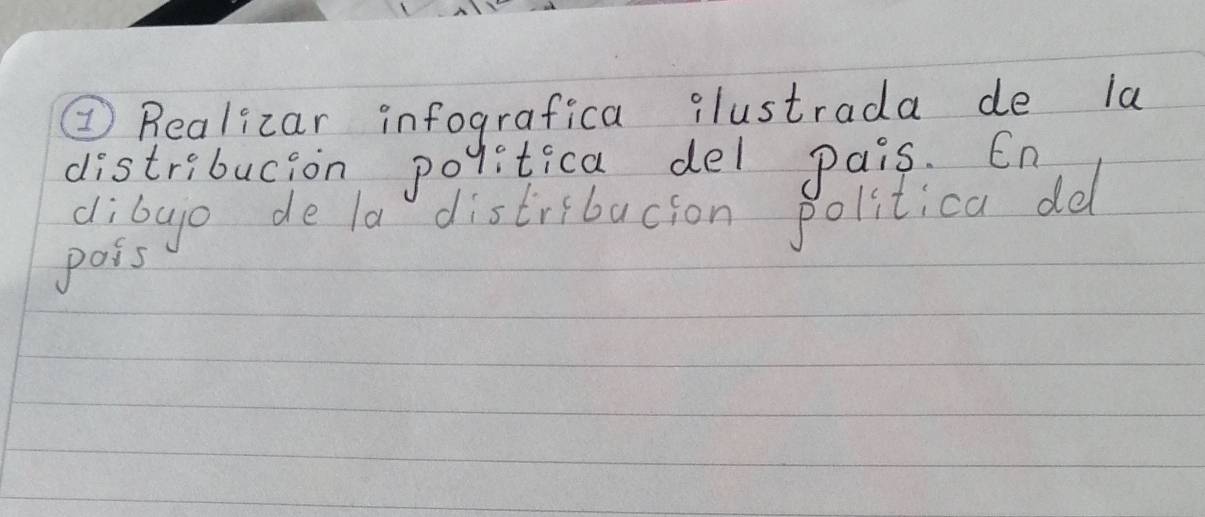 ① Realizar infografica ilustrada de la
distribución politica del pais. En
dibujo de la distribucion politica del
pais